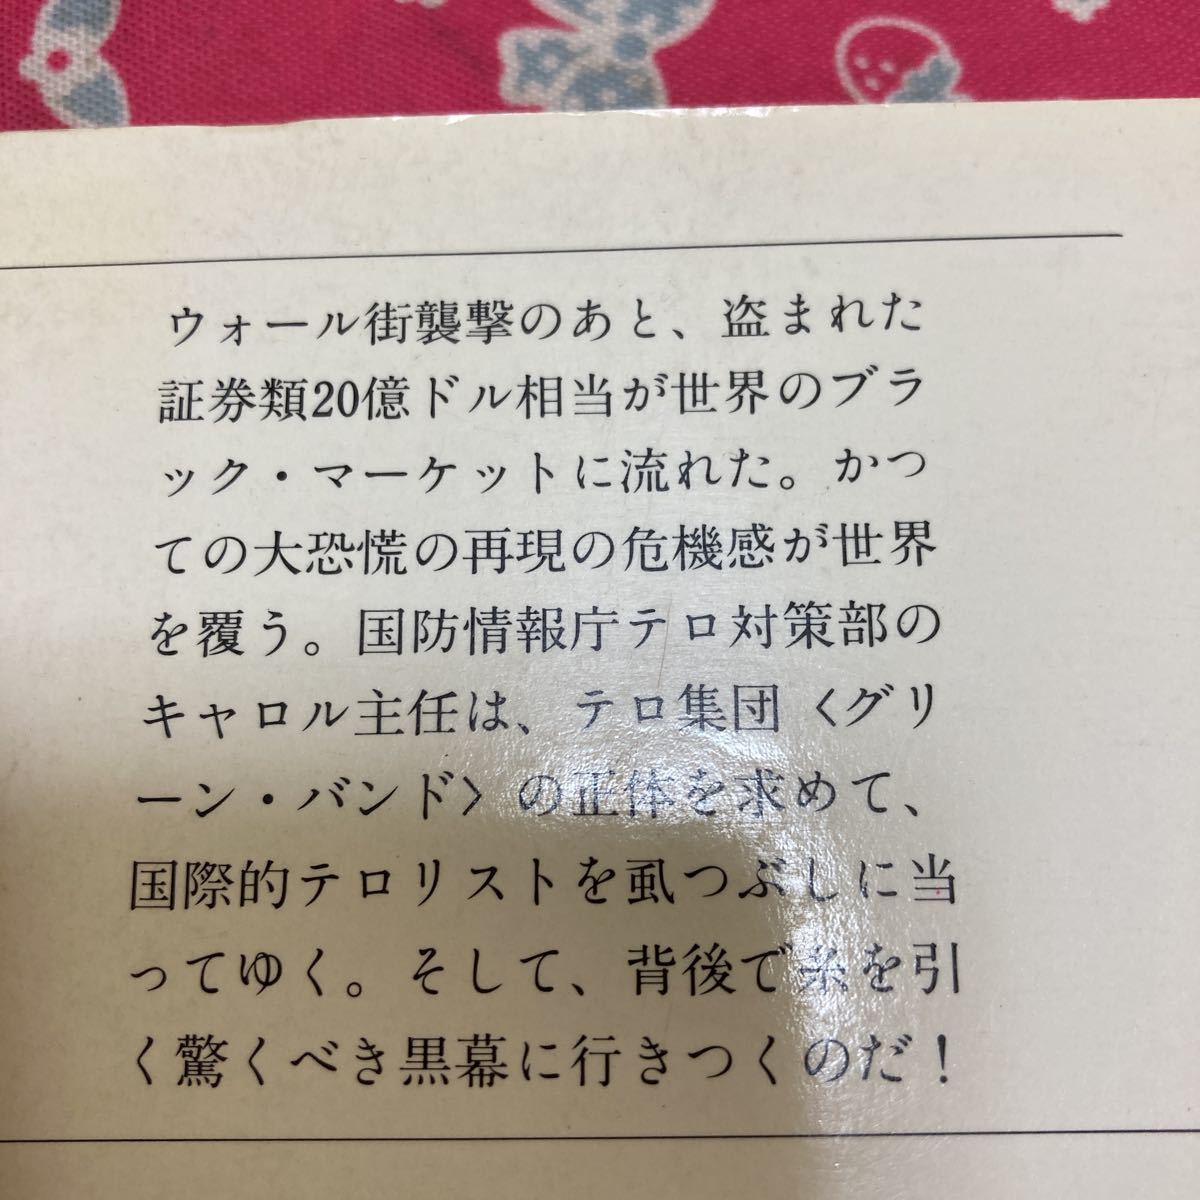 ウォール街襲撃のあと、盗まれた
証券類20億ドル相当が世界のブラ
ック・マーケットに流れた。かつ
ての大恐慌の再現の危機感が世界
を覆う。国防情報庁テロ対策部の
キャロル主任は、テロ集団〈グリ
ーン・バンド〉の正体を求めて、
国際的テロリストを虱つぶしに当
ってゆく。そして、背後で糸を引
く驚くべき黒幕に行きつくのだ！